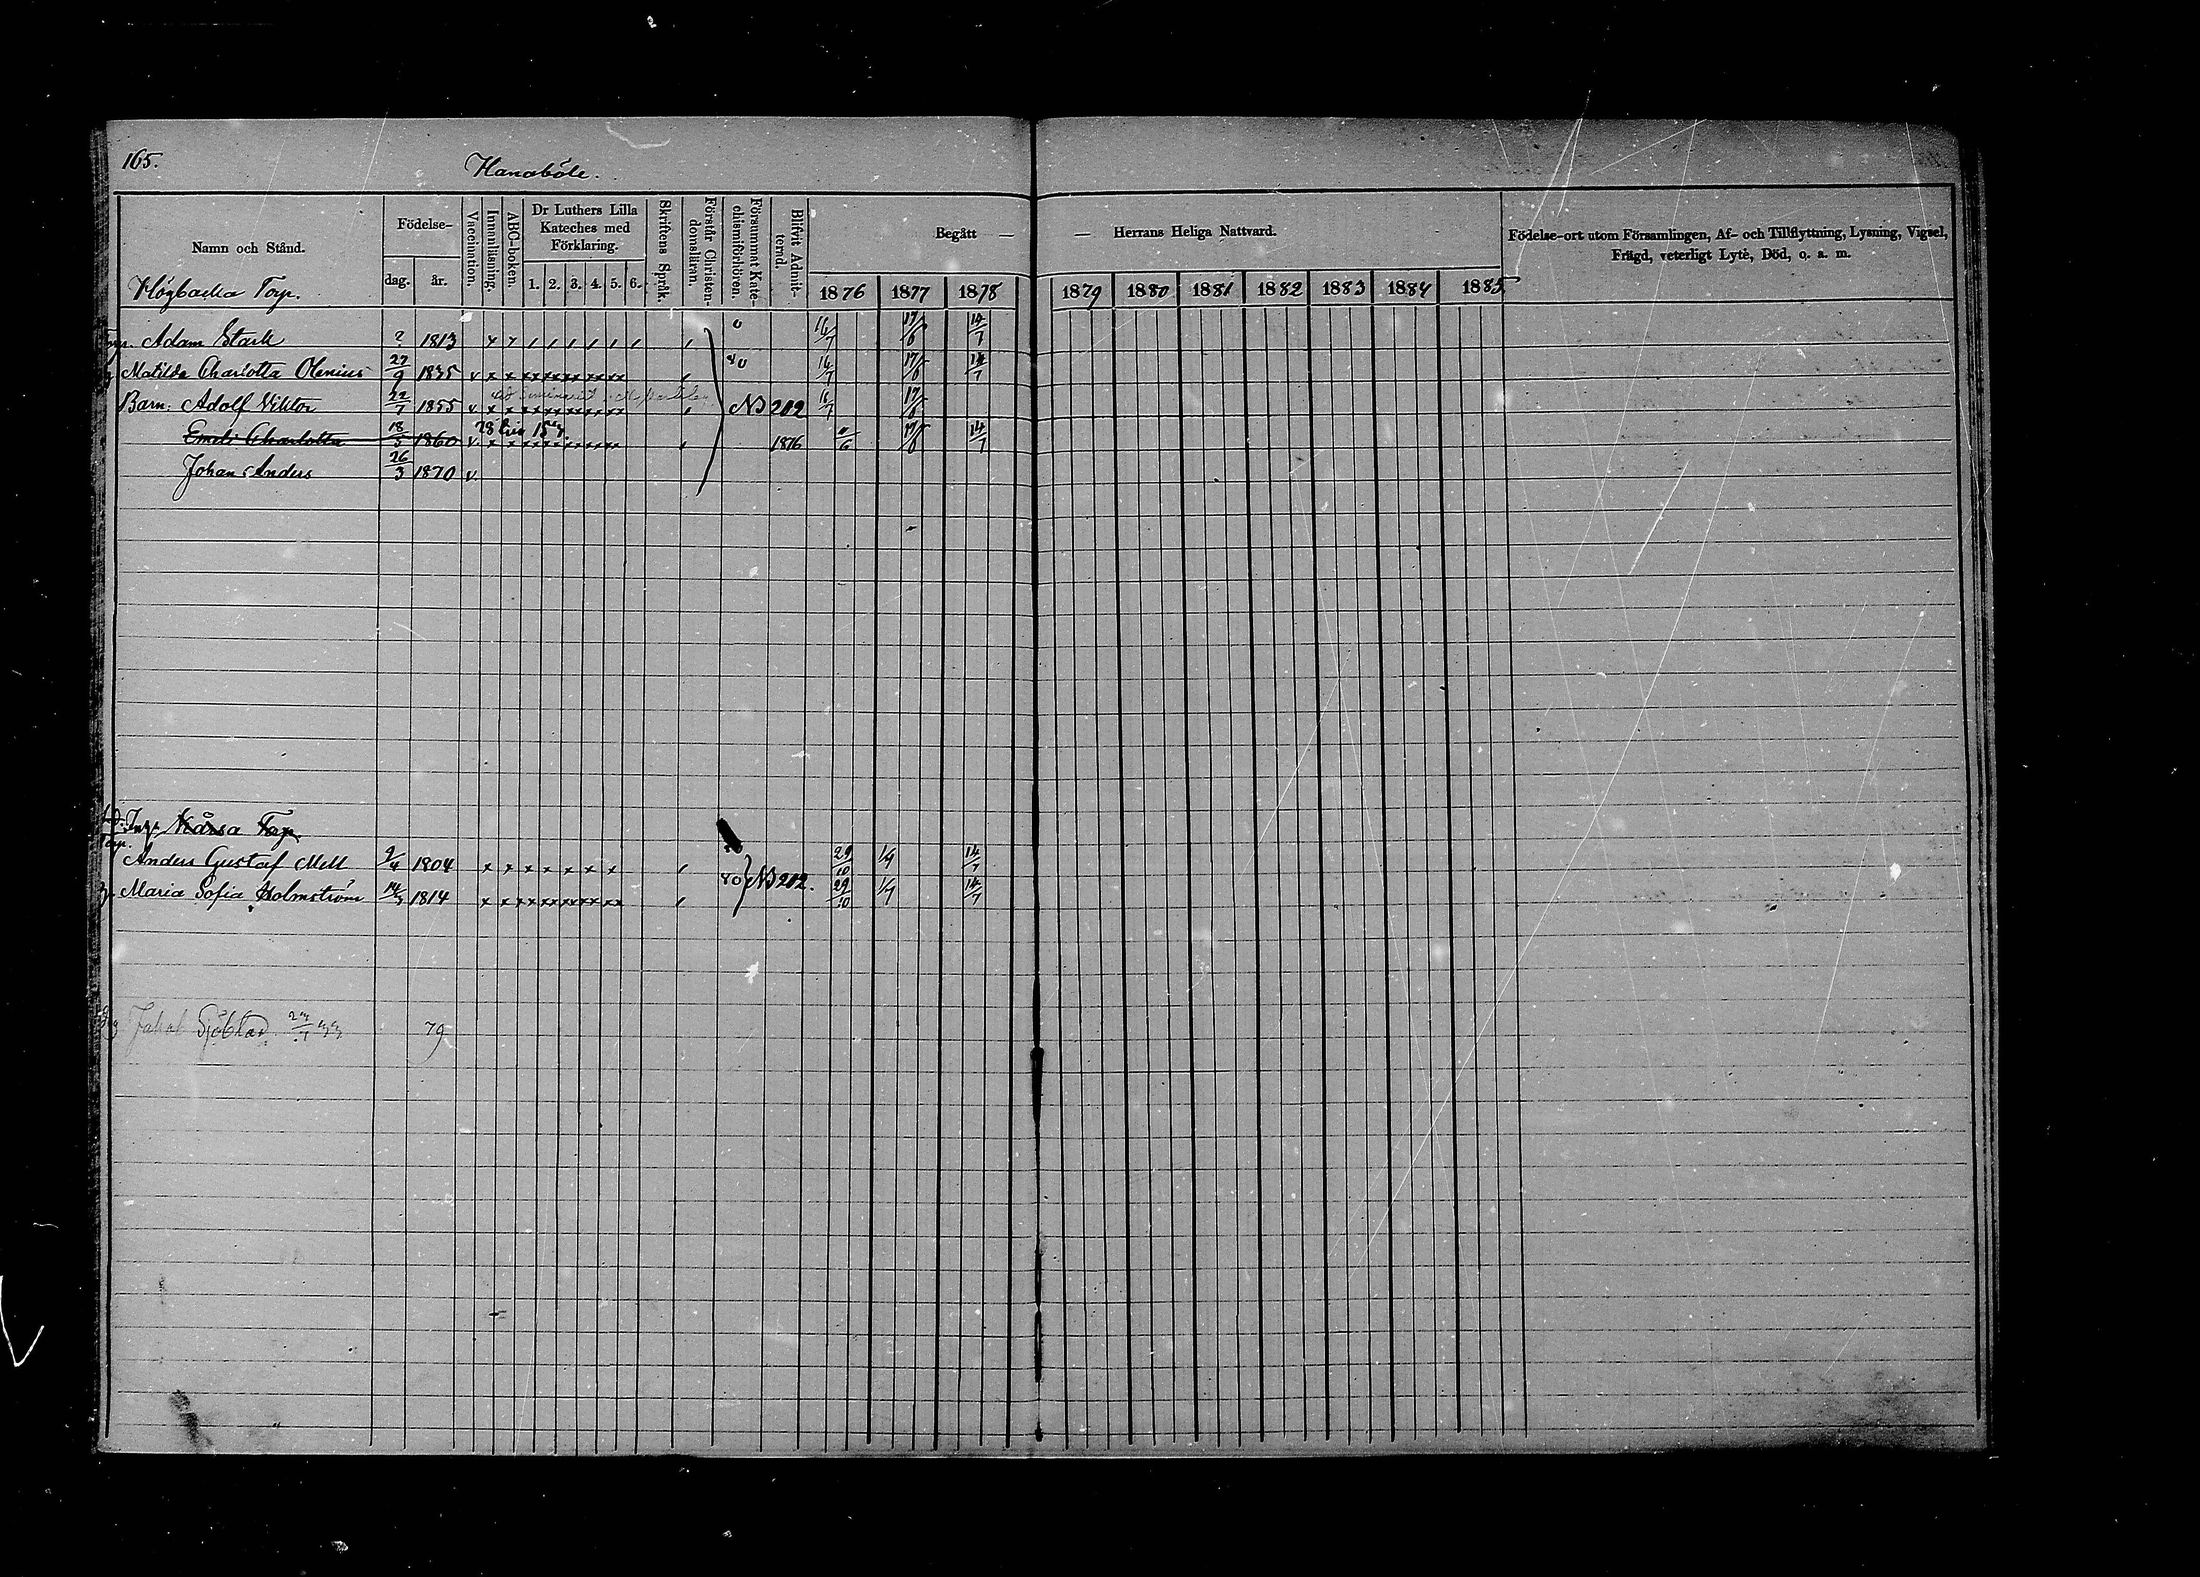 165.
Hanaböle.
Namn och Stånd. Födelse- Vaccination. Innanläsning. ABC-boken. Dr Luthers Lilla Kateches med Förklaring. Skriftens Språk. Förstår Christendomsläran. Försummat Katechismiförhören. Blifvit Admitterad. Begått — — Herrans Heliga Nattvard. Födelse-ort utom Församlingen, Af- och Tillflyttning, Lysning, Vigsel, Frägd, veterligt Lyte, Död, o. a. m.
dag. år. 1. 2. 3. 4. 5. 6. 1876 1877 1878 1879 1880 1881 1882 1883 1884 1885
Högbacka Torp.
Adam Stark ? 1813 16/7 17/6 14/7
Matilda Charlotta Olenius 27/9 1835 v x x xx xx xx xx xx 16/7 17/6 14/7
Barn: Adolf Viktor 22/7 1855 v x x xx xx xx xx xx N3 202 16/7 17/6
Emeli Charlotta 18/5 1860 v x x 1876 17/6 14/7
Johan Anders 26/3 1870 v.
Torp.
Anders Gustaf Mell 9/4 1804 x x x x x x x 29/10 1/7 14/7
Maria Sofia Holmström 1814 x x xx xx xx xx xx 80 N3 202. 29/10 1/7 14/7
Sjöblad 79